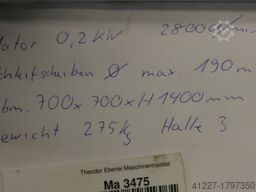 Motor 0,2 kW 2800 U/min
chleifscheiben Ø max. 190 m
bm. 700 x 700 x H 1400 mm
ewicht 275 kg Halle 3
Theodor Eberlei Maschinenhandel
Ma 3475
41227-1797350